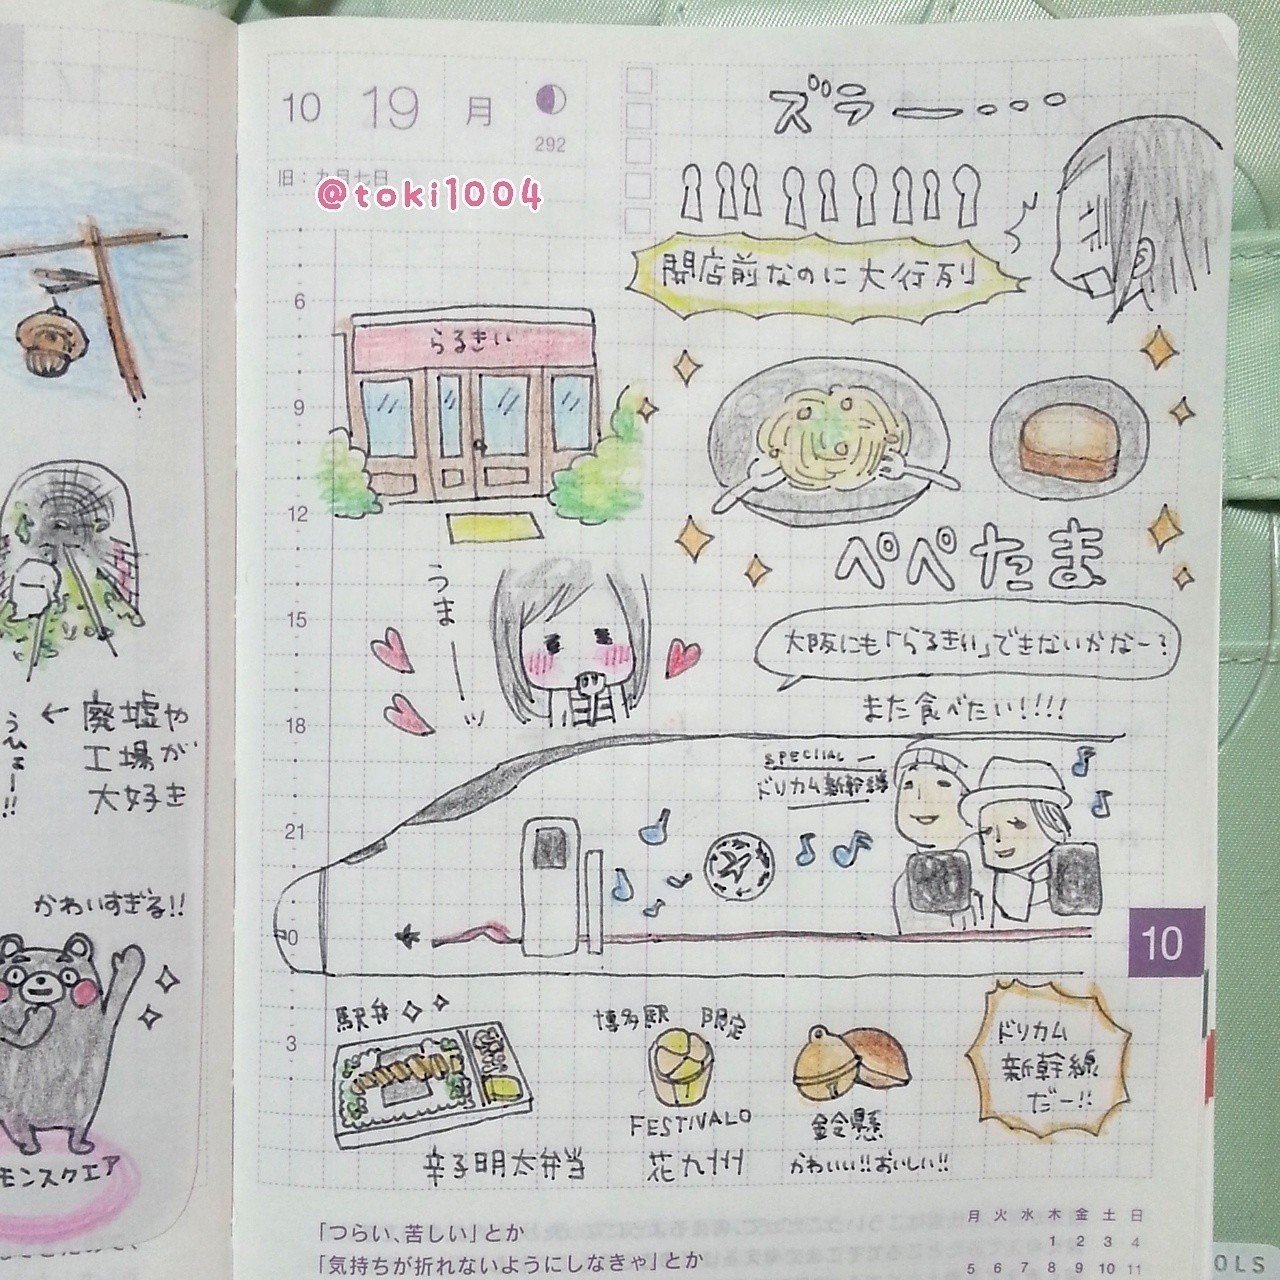 10 19 月
292
旧:九月七日
@toki1004
ズラー・・・
開店前なのに大行列
らるきぃ
6
9
12
15
18
21
0
3
ぺぺたま
うまーッ
大阪にも「らるきぃ」できないかなー?
また食べたい!!!!
SPECIAL
ドリカム新幹線
駅弁
辛子明太弁当
博多駅 限定
FESTIVALO
花九州
鈴懸
かわいい!!おいしい!!
ドリカム
新幹線
だー!!
10
「つらい、苦しい」とか
「気持ちが折れないようにしなきゃ」とか
月 火 水 木 金 土 日
1 2 3 4
5 6 7 8 9 10 11
← 廃墟や
工場が
大好き
うひょー!!
かわいすぎる!!
モンスクエア
OLS